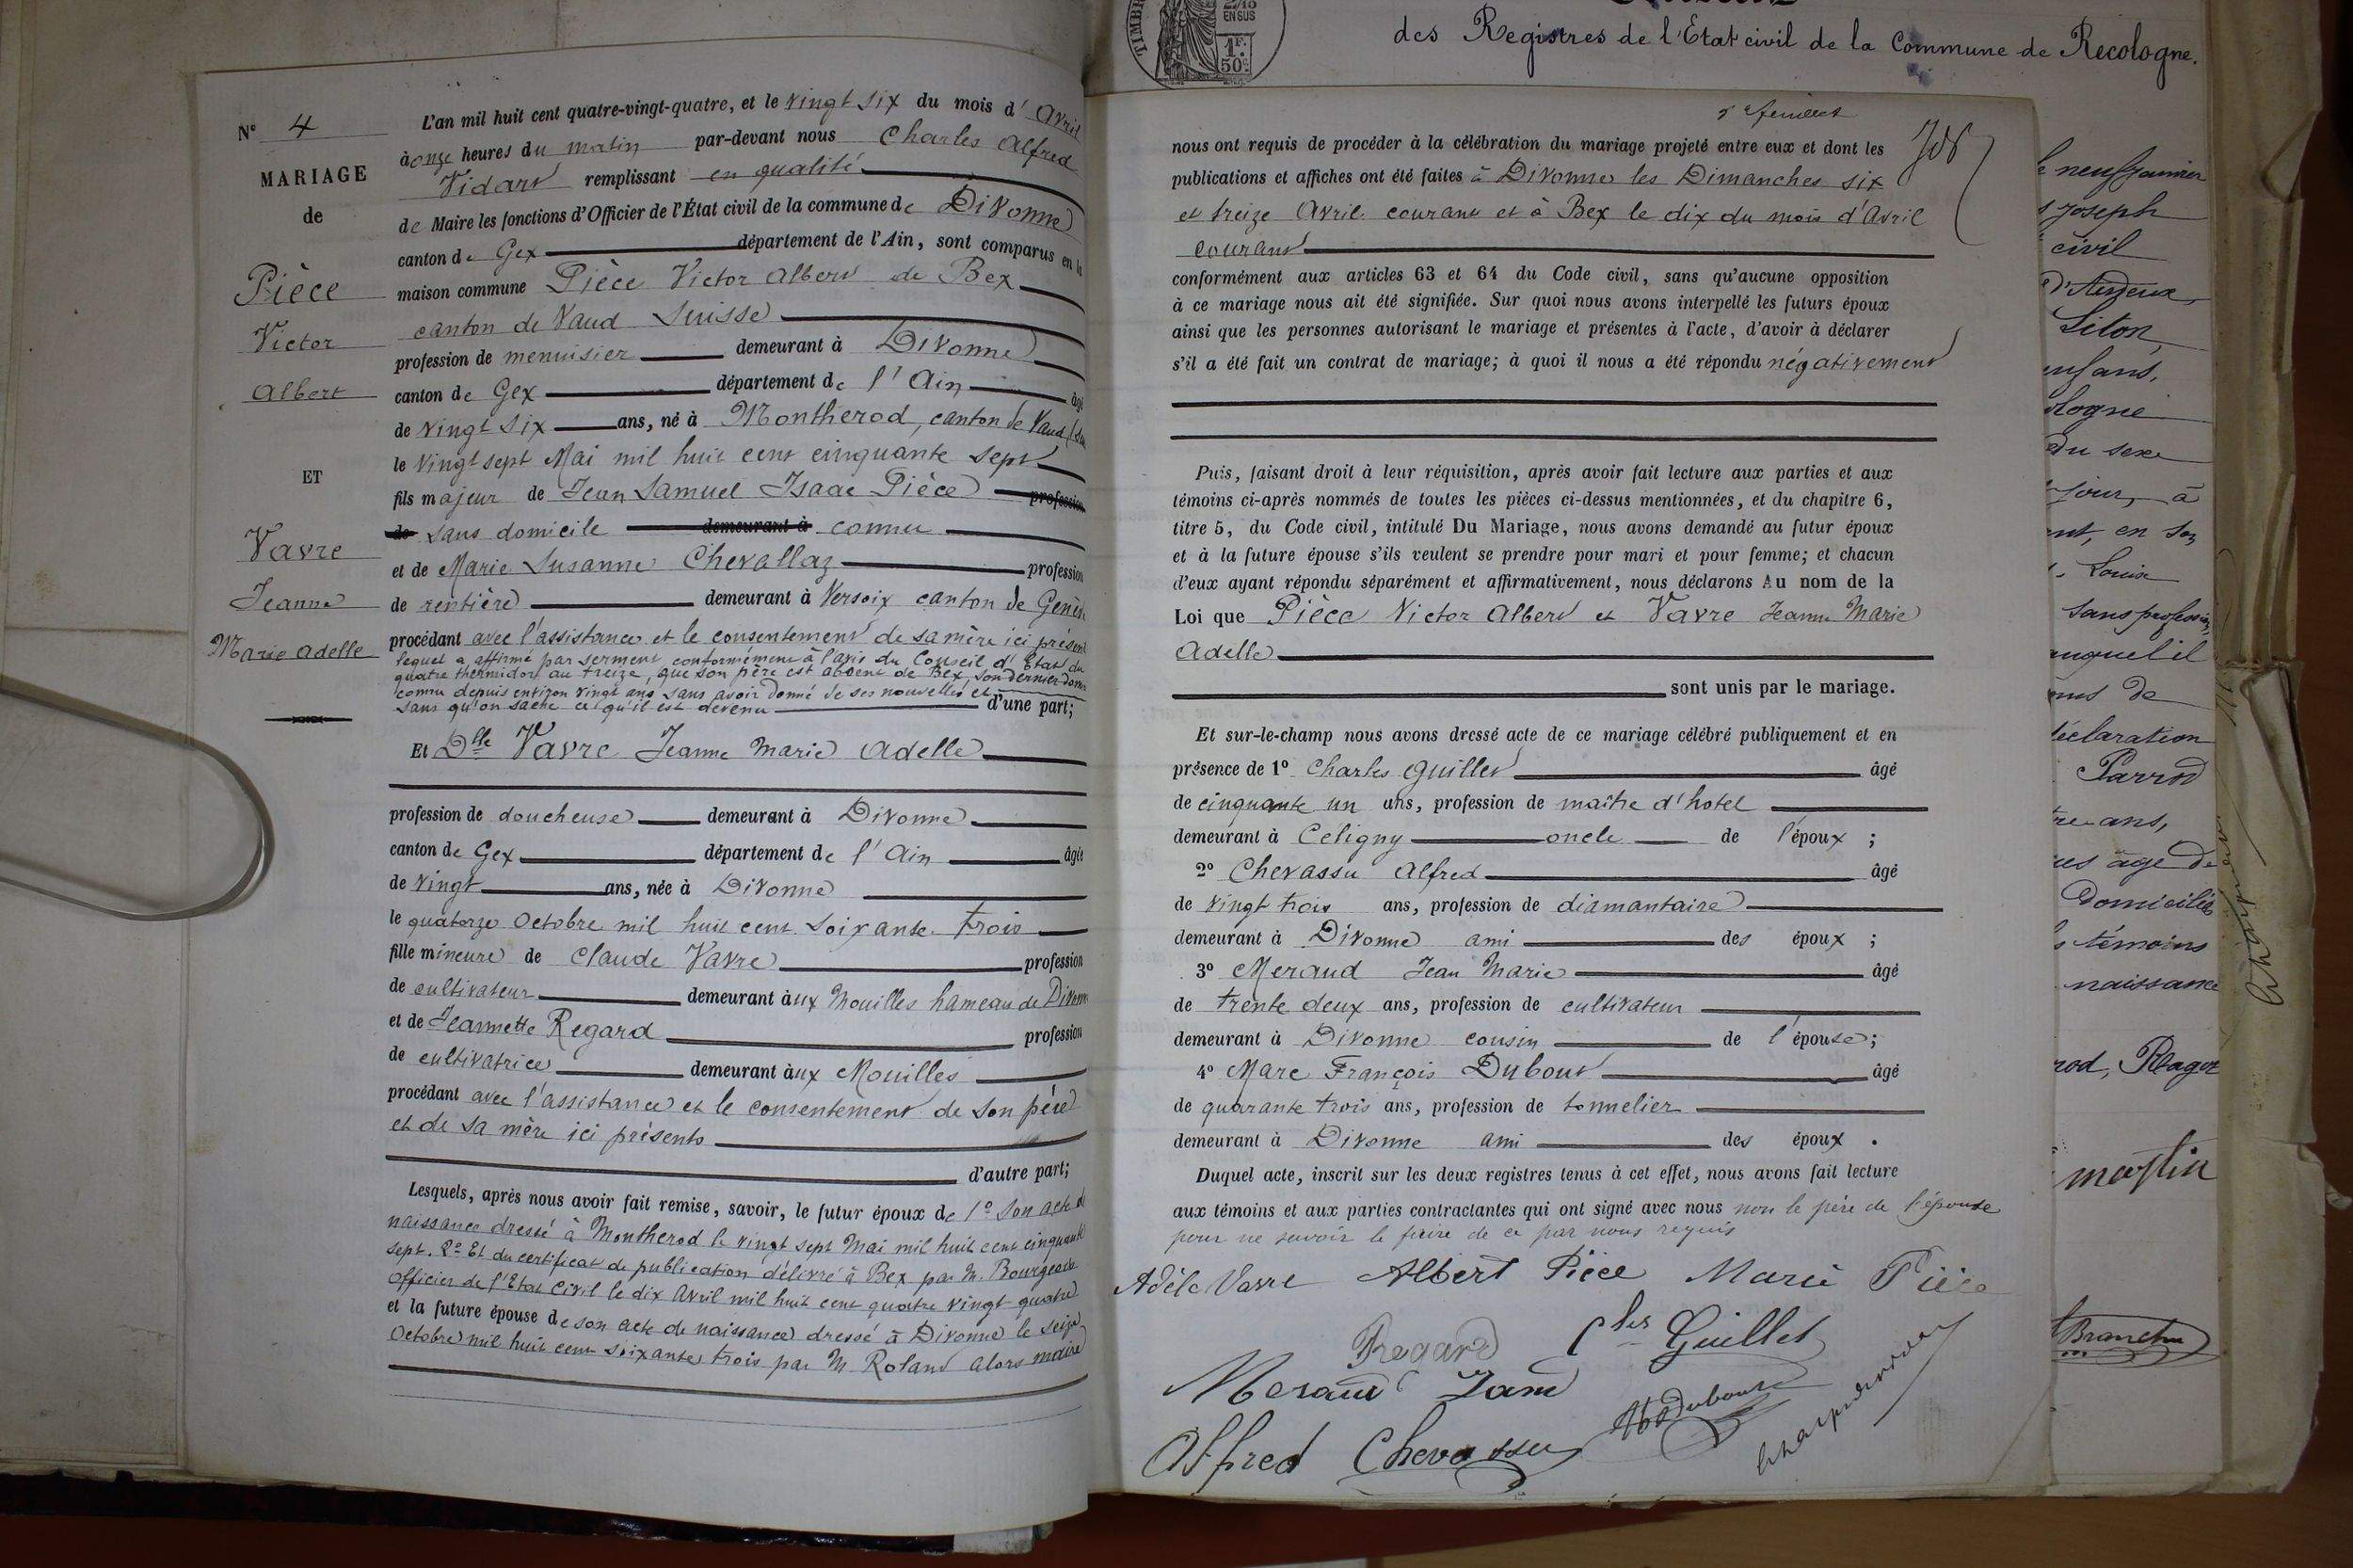 N° 4
MARIAGE
de
Pièce
Victor
Albert
ET
Vavre
Jeanne
Marie Adelle
L'an mil huit cent quatre-vingt-quatre, et le vingt six du mois d'Avril
à onze heures du matin par-devant nous Charles Alfred
Vidart remplissant en qualité
de Maire les fonctions d'Officier de l'État civil de la commune de Divonne
canton de Gex département de l'Ain, sont comparus en la
maison commune Pièce Victor Albert de Bex
canton de Vaud Suisse
profession de menuisier demeurant à Divonne
canton de Gex département de l'Ain âgé
de vingt six ans, né à Montherod, canton de Vaud
le vingt sept Mai mil huit cent cinquante sept
fils majeur de Jean Samuel Isaac Pièce profession
de sans domicile demeurant à connu
et de Marie Susanne Chevallaz profession
de rentière demeurant à Versoix canton de Genève
procédant avec l'assistance et le consentement de sa mère ici présent
lequel a affirmé par serment conformément à l'avis du Conseil d'Etat du
quatre thermidor an treize, que son père est absent de Bex, son dernier
connu depuis environ vingt ans sans avoir donné de ses nouvelles et
sans qu'on sache ce qu'il est devenu d'une part;
Et Dlle Vavre Jeanne Marie Adelle
profession de doucheuse demeurant à Divonne
canton de Gex département de l'Ain âgée
de vingt ans, née à Divonne
le quatorze Octobre mil huit cent soixante trois
fille mineure de Claude Vavre profession
de cultivateur demeurant aux Mouilles hameau de Divonne
et de Jeannette Regard profession
de cultivatrice demeurant aux Mouilles
procédant avec l'assistance et le consentement de son père
et de sa mère ici présents
d'autre part;
Lesquels, après nous avoir fait remise, savoir, le futur époux de 1° Son acte de
naissance dressé à Montherod le vingt sept Mai mil huit cent cinquante
sept. 2° Et du certificat de publication délivré à Bex par M. Bourgeois
Officier de l'Etat Civil le dix Avril mil huit cent quatre vingt quatre
et la future épouse de son acte de naissance dressé à Divonne le seize
Octobre mil huit cent soixante trois par M. Roland alors maire
TIMBR
EN SUS
1F.
50c.
des Registres de l'Etat civil de la Commune de Recologne.
nous ont requis de procéder à la célébration du mariage projeté entre eux et dont les
publications et affiches ont été faites à Divonne les Dimanches six
et treize Avril courant et à Bex le dix du mois d'Avril
courant
conformément aux articles 63 et 64 du Code civil, sans qu'aucune opposition
à ce mariage nous ait été signifiée. Sur quoi nous avons interpellé les futurs époux
ainsi que les personnes autorisant le mariage et présentes à l'acte, d'avoir à déclarer
s'il a été fait un contrat de mariage; à quoi il nous a été répondu négativement
Puis, faisant droit à leur réquisition, après avoir fait lecture aux parties et aux
témoins ci-après nommés de toutes les pièces ci-dessus mentionnées, et du chapitre 6,
titre 5, du Code civil, intitulé Du Mariage, nous avons demandé au futur époux
et à la future épouse s'ils veulent se prendre pour mari et pour femme; et chacun
d'eux ayant répondu séparément et affirmativement, nous déclarons Au nom de la
Loi que Pièce Victor Albert et Vavre Jeanne Marie
Adelle
sont unis par le mariage.
Et sur-le-champ nous avons dressé acte de ce mariage célébré publiquement et en
présence de 1° Charles Guillet âgé
de cinquante un ans, profession de maître d'hotel
demeurant à Céligny oncle de l'époux ;
2° Chevassu Alfred âgé
de vingt trois ans, profession de diamantaire
demeurant à Divonne ami des époux ;
3° Meraud Jean Marie âgé
de trente deux ans, profession de cultivateur
demeurant à Divonne cousin de l'épouse;
4° Marc François Dubout âgé
de quarante trois ans, profession de tonnelier
demeurant à Divonne ami des époux .
Duquel acte, inscrit sur les deux registres tenus à cet effet, nous avons fait lecture
aux témoins et aux parties contractantes qui ont signé avec nous non le père de l'épouse
pour ne savoir le faire de ce par nous requis
Adèle Vavre Albert Pièce Marie Pièce
Regard Chles Guillet
Meraud Jane
Alfred Chevassu
neuf Janvier
Joseph
civil
Liton,
enfans,
ologne
du sexe
jour, à
ent, en son
Louise
sans profession,
auquel il
de
déclaration
Parrod
ans,
âgé de
Domiciliés
témoins
naissance
martin